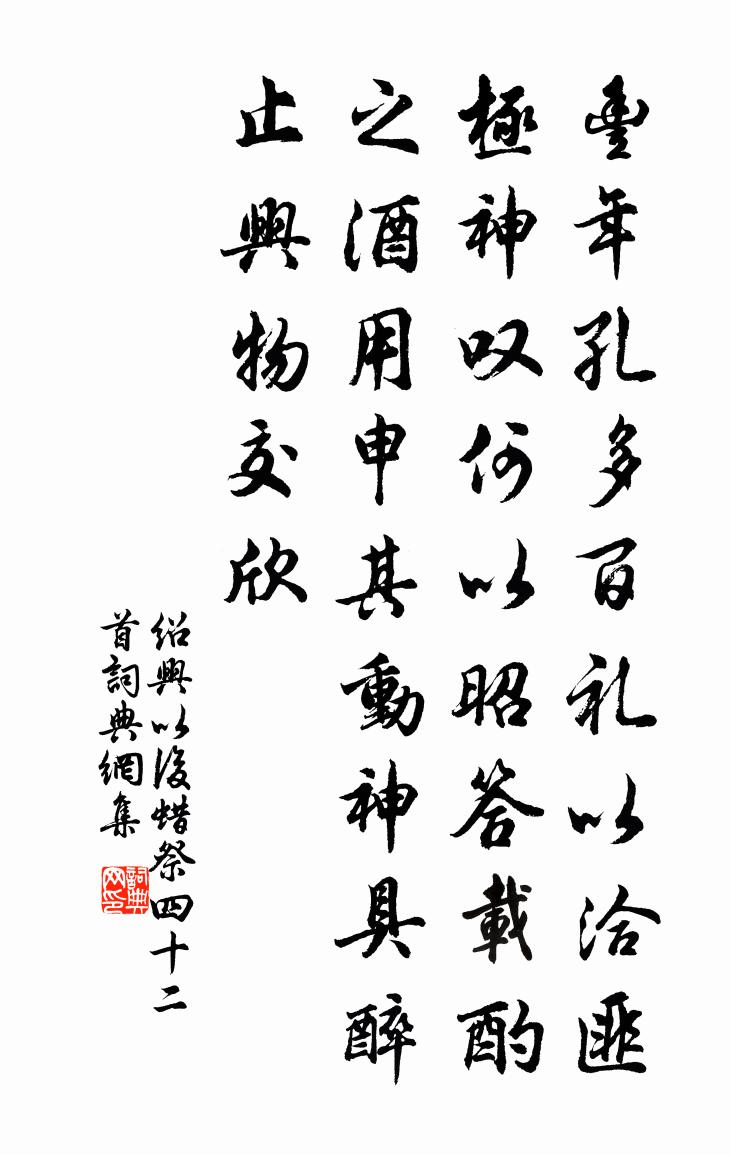 豐年孔多百礼以洽匪
極神叹何以昭答載酌
之酒用申其動神具醉
止興物交欣
绍興以後蜡祭四十二
首詞典網集
詞典
网印